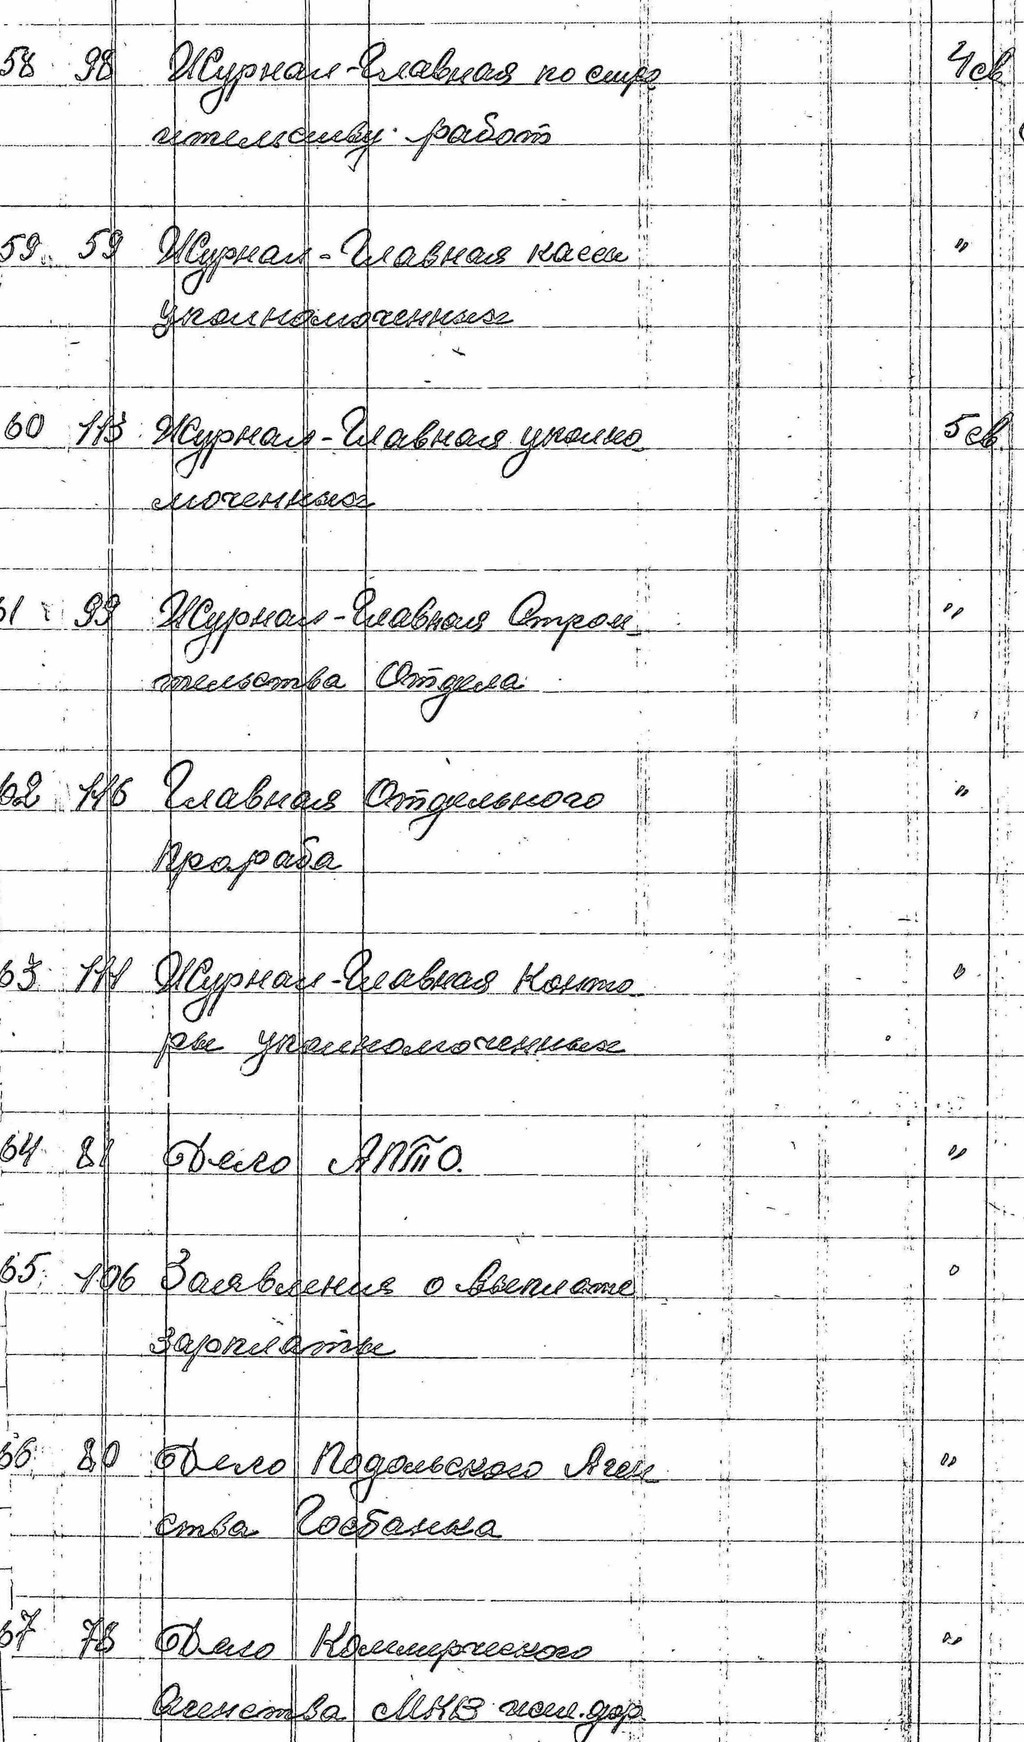 58 98 Журнал-Главная по стро 4 св
ительству работ
59 59 Журнал-Главная кассы "
уполномоченных
60 113 Журнал-Главная уполно 5 св
моченных
61 99 Журнал-Главная Строи "
тельства Отдела
62 116 Главная Отдельного "
Прораба
63 111 Журнал-Главная Конто "
ры уполномоченных
64 81 Дело АПТО. "
65 106 Заявления о выплате "
зарплаты
66 80 Дело Подольского Аген "
ства Госбанка
67 78 Дело Коммерческого "
Агенства МКВ жел.дор.